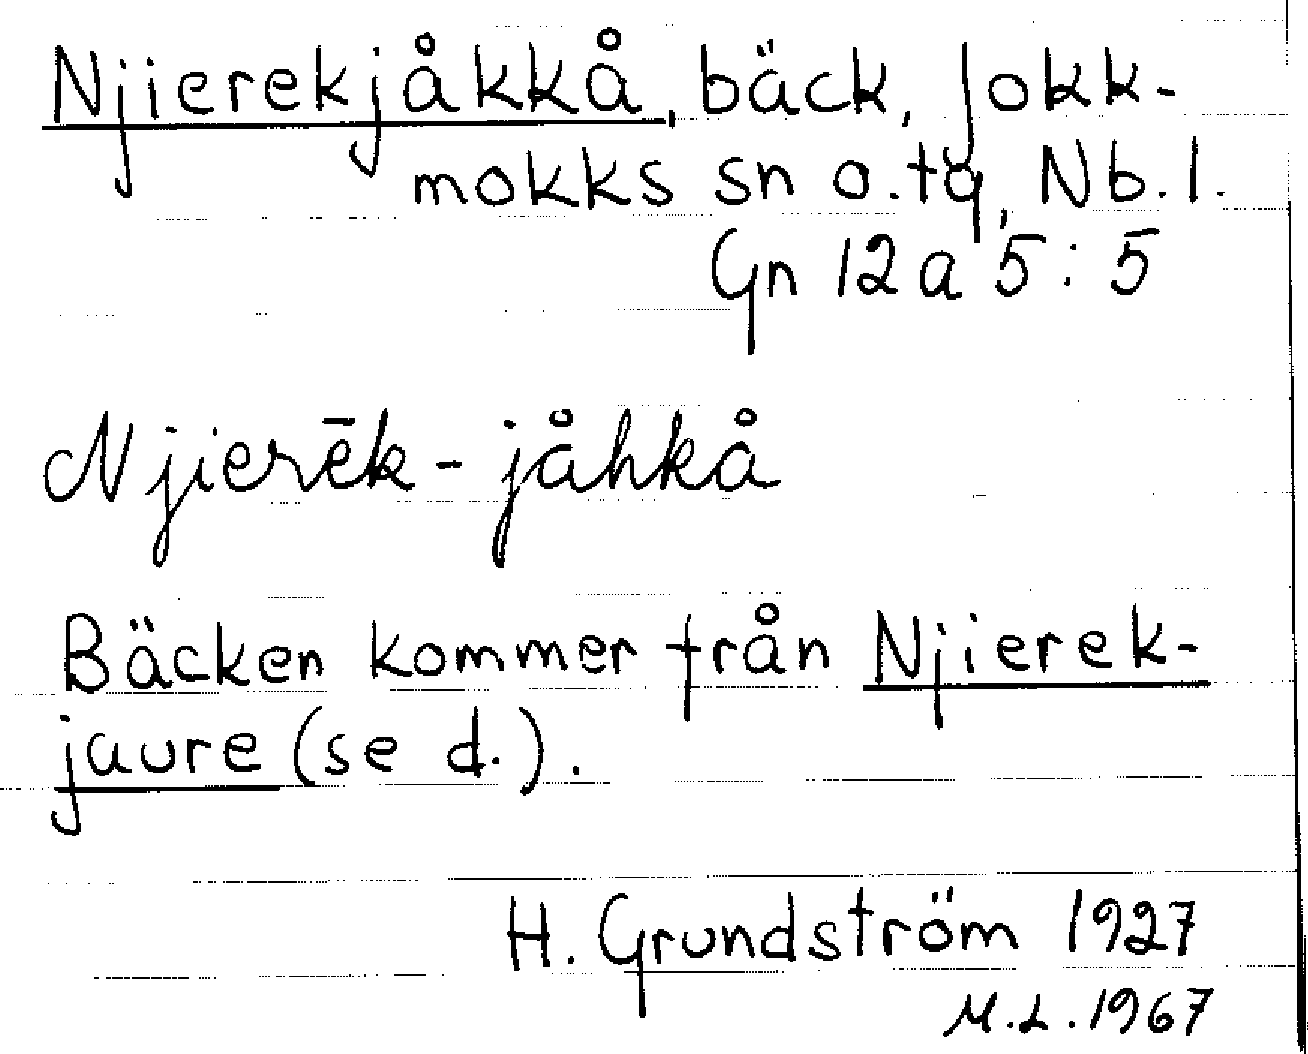 Njierekjåkkå, bäck, Jokk-
mokks sn o.tg, Nb.l.
Gn 12 a 5 : 5
Njierēk-jåhkå
Bäcken kommer från Njierek-
jaure (se d.).
H. Grundström 1927
M.L. 1967